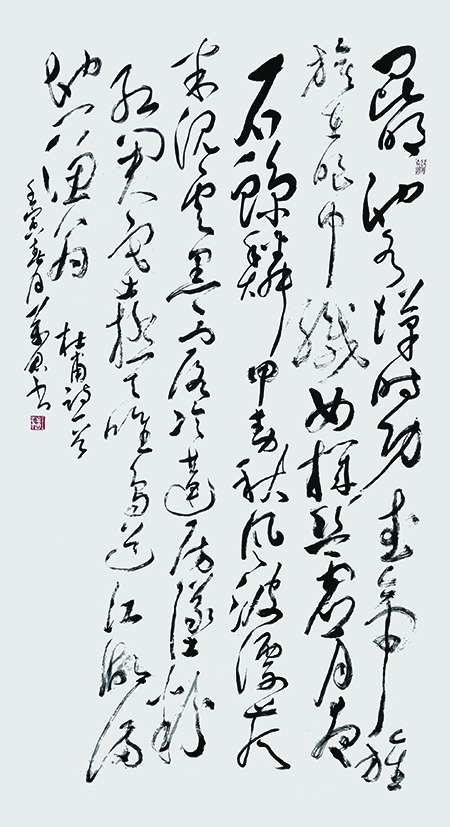 昆明池水漢時功武帝旌
旗在眼中織女機絲虛月夜
石鯨鱗甲動秋風波漂菰
米沉雲黑露冷蓮房墜粉
紅關塞極天唯鳥道江湖滿
地一漁翁
杜甫詩一首
壬寅春月 書